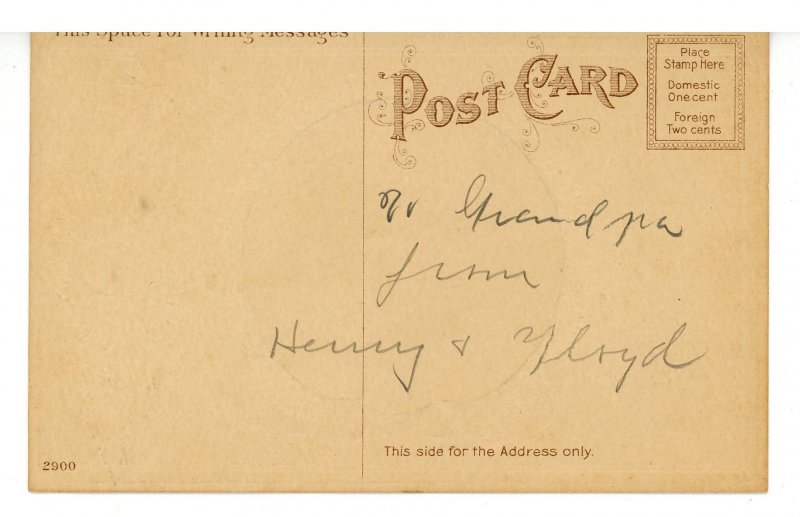 This Space For Writing Messages
POST CARD
Place
Stamp Here
Domestic
One cent
Foreign
Two cents
To Grandpa
from
Henry & Floyd
This side for the Address only.
2900